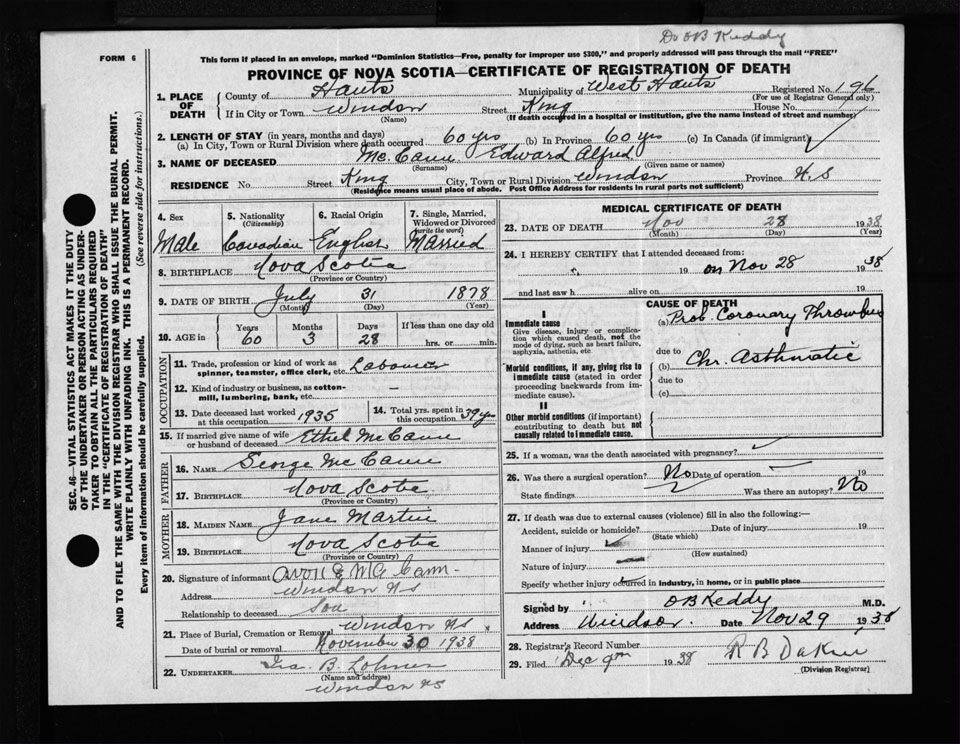 Dr OB Keddy
FORM 6
This form if placed in an envelope, marked "Dominion Statistics—Free, penalty for improper use $300," and properly addressed will pass through the mail "FREE"
PROVINCE OF NOVA SCOTIA—CERTIFICATE OF REGISTRATION OF DEATH
1. PLACE OF DEATH County of Hants Municipality of West Hants Registered No. 196
(For use of Registrar General only)
If in City or Town Windsor Street King House No.
(Name) (If death occurred in a hospital or institution, give the name instead of street and number)
2. LENGTH OF STAY (in years, months and days)
(a) In City, Town or Rural Division where death occurred 60 yrs (b) In Province 60 yrs (c) In Canada (if immigrant)
3. NAME OF DECEASED Mc.Cann Edward Alfred
(Surname) (Given name or names)
RESIDENCE No. Street King City, Town or Rural Division Windsor Province N.S
(Residence means usual place of abode. Post Office Address for residents in rural parts not sufficient)
4. Sex 5. Nationality (Citizenship) 6. Racial Origin 7. Single, Married, Widowed or Divorced (write the word)
Male Canadian English Married
8. BIRTHPLACE Nova Scotia
(Province or Country)
9. DATE OF BIRTH July 31 1878
(Month) (Day) (Year)
10. AGE in Years Months Days If less than one day old
60 3 28 hrs. or min.
OCCUPATION
11. Trade, profession or kind of work as spinner, teamster, office clerk, etc. Labourer
12. Kind of industry or business, as cotton-mill, lumbering, bank, etc. —
13. Date deceased last worked at this occupation 1935 14. Total yrs. spent in this occupation 39 yrs
15. If married give name of wife or husband of deceased Ethel McCann
FATHER
16. NAME George McCann
17. BIRTHPLACE Nova Scotia
(Province or Country)
MOTHER
18. MAIDEN NAME Jane Martin
19. BIRTHPLACE Nova Scotia
(Province or Country)
20. Signature of informant Avon E McCann
Address Windsor NS
Relationship to deceased Son
21. Place of Burial, Cremation or Removal Windsor NS
Date of burial or removal November 30 1938
22. UNDERTAKER Ira B.
(Name and address)
Windsor NS
MEDICAL CERTIFICATE OF DEATH
23. DATE OF DEATH Nov 28 1938
(Month) (Day) (Year)
24. I HEREBY CERTIFY that I attended deceased from:
19 on Nov 28 1938
and last saw h alive on 19
CAUSE OF DEATH
I
Immediate cause
Give disease, injury or complication which caused death, not the mode of dying, such as heart failure, asphyxia, asthenia, etc
(a) Prob. Coronary Thrombus
due to
Morbid conditions, if any, giving rise to immediate cause (stated in order proceeding backwards from immediate cause).
(b) Chr. Asthmatic
due to
(c)
II
Other morbid conditions (if important) contributing to death but not causally related to immediate cause.
25. If a woman, was the death associated with pregnancy?
26. Was there a surgical operation? No Date of operation 19
State findings Was there an autopsy? No
27. If death was due to external causes (violence) fill in also the following:—
Accident, suicide or homicide? Date of injury 19
(State which)
Manner of injury
(How sustained)
Nature of injury
Specify whether injury occurred in industry, in home, or in public place
Signed by OB Keddy M.D.
Address Windsor. Date Nov 29 1938
28. Registrar's Record Number
29. Filed Dec 9th 1938 R B Dakin
(Division Registrar)
SEC. 46—VITAL STATISTICS ACT MAKES IT THE DUTY
OF THE UNDERTAKER OR PERSON ACTING AS UNDER-
TAKER TO OBTAIN ALL THE PARTICULARS REQUIRED
IN THE "CERTIFICATE OF REGISTRATION OF DEATH"
AND TO FILE THE SAME WITH THE DIVISION REGISTRAR WHO SHALL ISSUE THE BURIAL PERMIT.
WRITE PLAINLY WITH UNFADING INK. THIS IS A PERMANENT RECORD.
Every item of information should be carefully supplied. (See reverse side for instructions.)